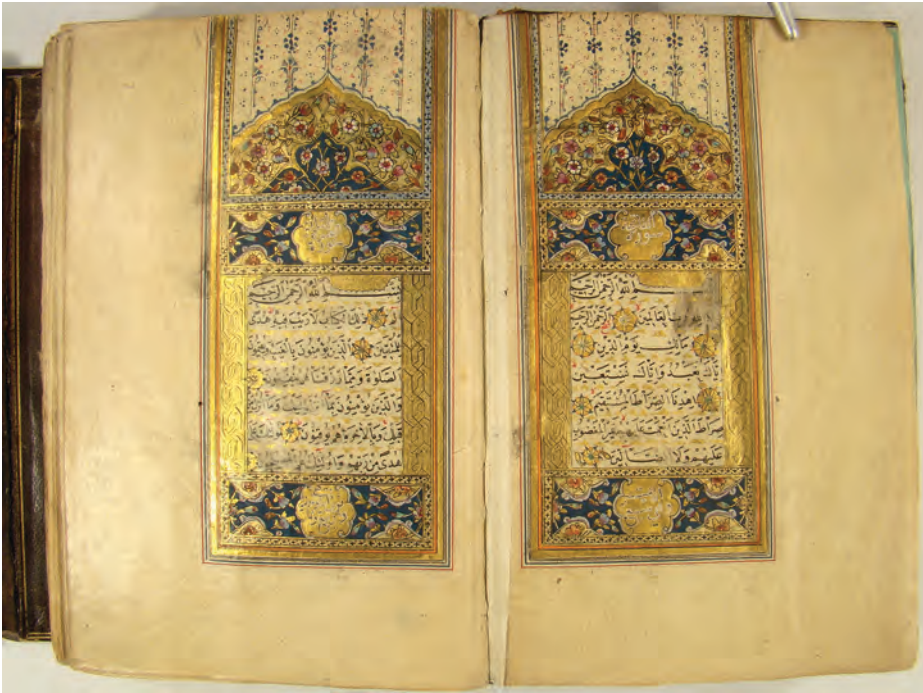 سورة
بسم الله الرحمن الرحيم
لله رب العالمين الرحمن الرحيم
مالك يوم الدين
اياك نعبد واياك نستعين
اهدنا الصراط المستقيم
صراط الذين انعمت عليهم غير المغضوب
عليهم ولا الضالين
بسم الله الرحمن الرحيم
ذلك الكتاب لا ريب فيه هدى
للمتقين الذين يؤمنون بالغيب ويقيمون
الصلوة ومما رزقناهم ينفقون
والذين يؤمنون بما انزل اليك
قبلك وبالاخرة هم يوقنون
هدى من ربهم واولئك هم